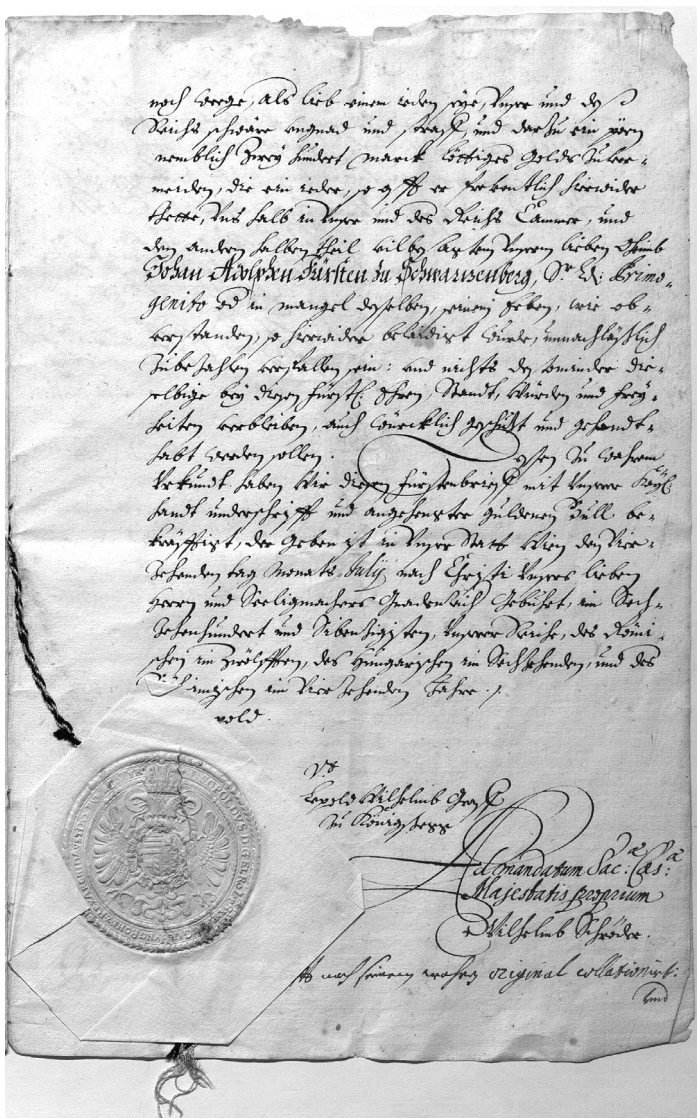 noch wege, als lieb einem ieden seye, Unsere und deß
Reichs schwäre ungnad und straff, und darzu ein pöen
nemblich Zwey hundert marck löttiges Golds Zuver-
meiden, die ein ieder, so offt er freventlich hierwider
thette, Uns halb in Unsere und des Reichs Cammer, und
den andern halben theil vilbesagtem Unserem lieben Ohaimb
Johan Adolphen Fürsten zu Schwarzenberg, Sr. Primo-
genito od in mangel desselben, seinen Erben, wie ob-
verstanden, so hierwider belaidiget wurde, unnachläßlich
Zubezahlen verfallen sein: und nichts destominder die-
selbige bey diesen Fürstl: Ehren, Standt, Würden und Frey-
heiten verbleiben, auch würcklich geschüzt und gehandt-
habt werden sollen. essen Zu wahrem
Urkundt haben Wir diesen Fürstenbrieff mit Unserer Kayl:
handt underschrifft und angehengter guldenen Bull be-
kräfftiget, der Geben ist in Unserer Statt Wien den Vier-
Zehenden tag Monats July, nach Christi Unsers lieben
Herrn und Seeligmachers Gnadenreich Gebuhrt, im Sech-
Zehenhundert und Sibentzigisten, Unserer Reiche, des Römi-
schen im Zwölfften, des Hungarischen im Sechzehenden, und des
Böhaimischen im Vierzehenden Jahre ./.
pold.
Vt
Leopold Wilhelmb Graff
Zu Königsegg
Ad mandatum Sac:ae Caes:ae
Majestatis proprium
Wilhelmb Schröder.
nach seinem wahren original collationirt:
und